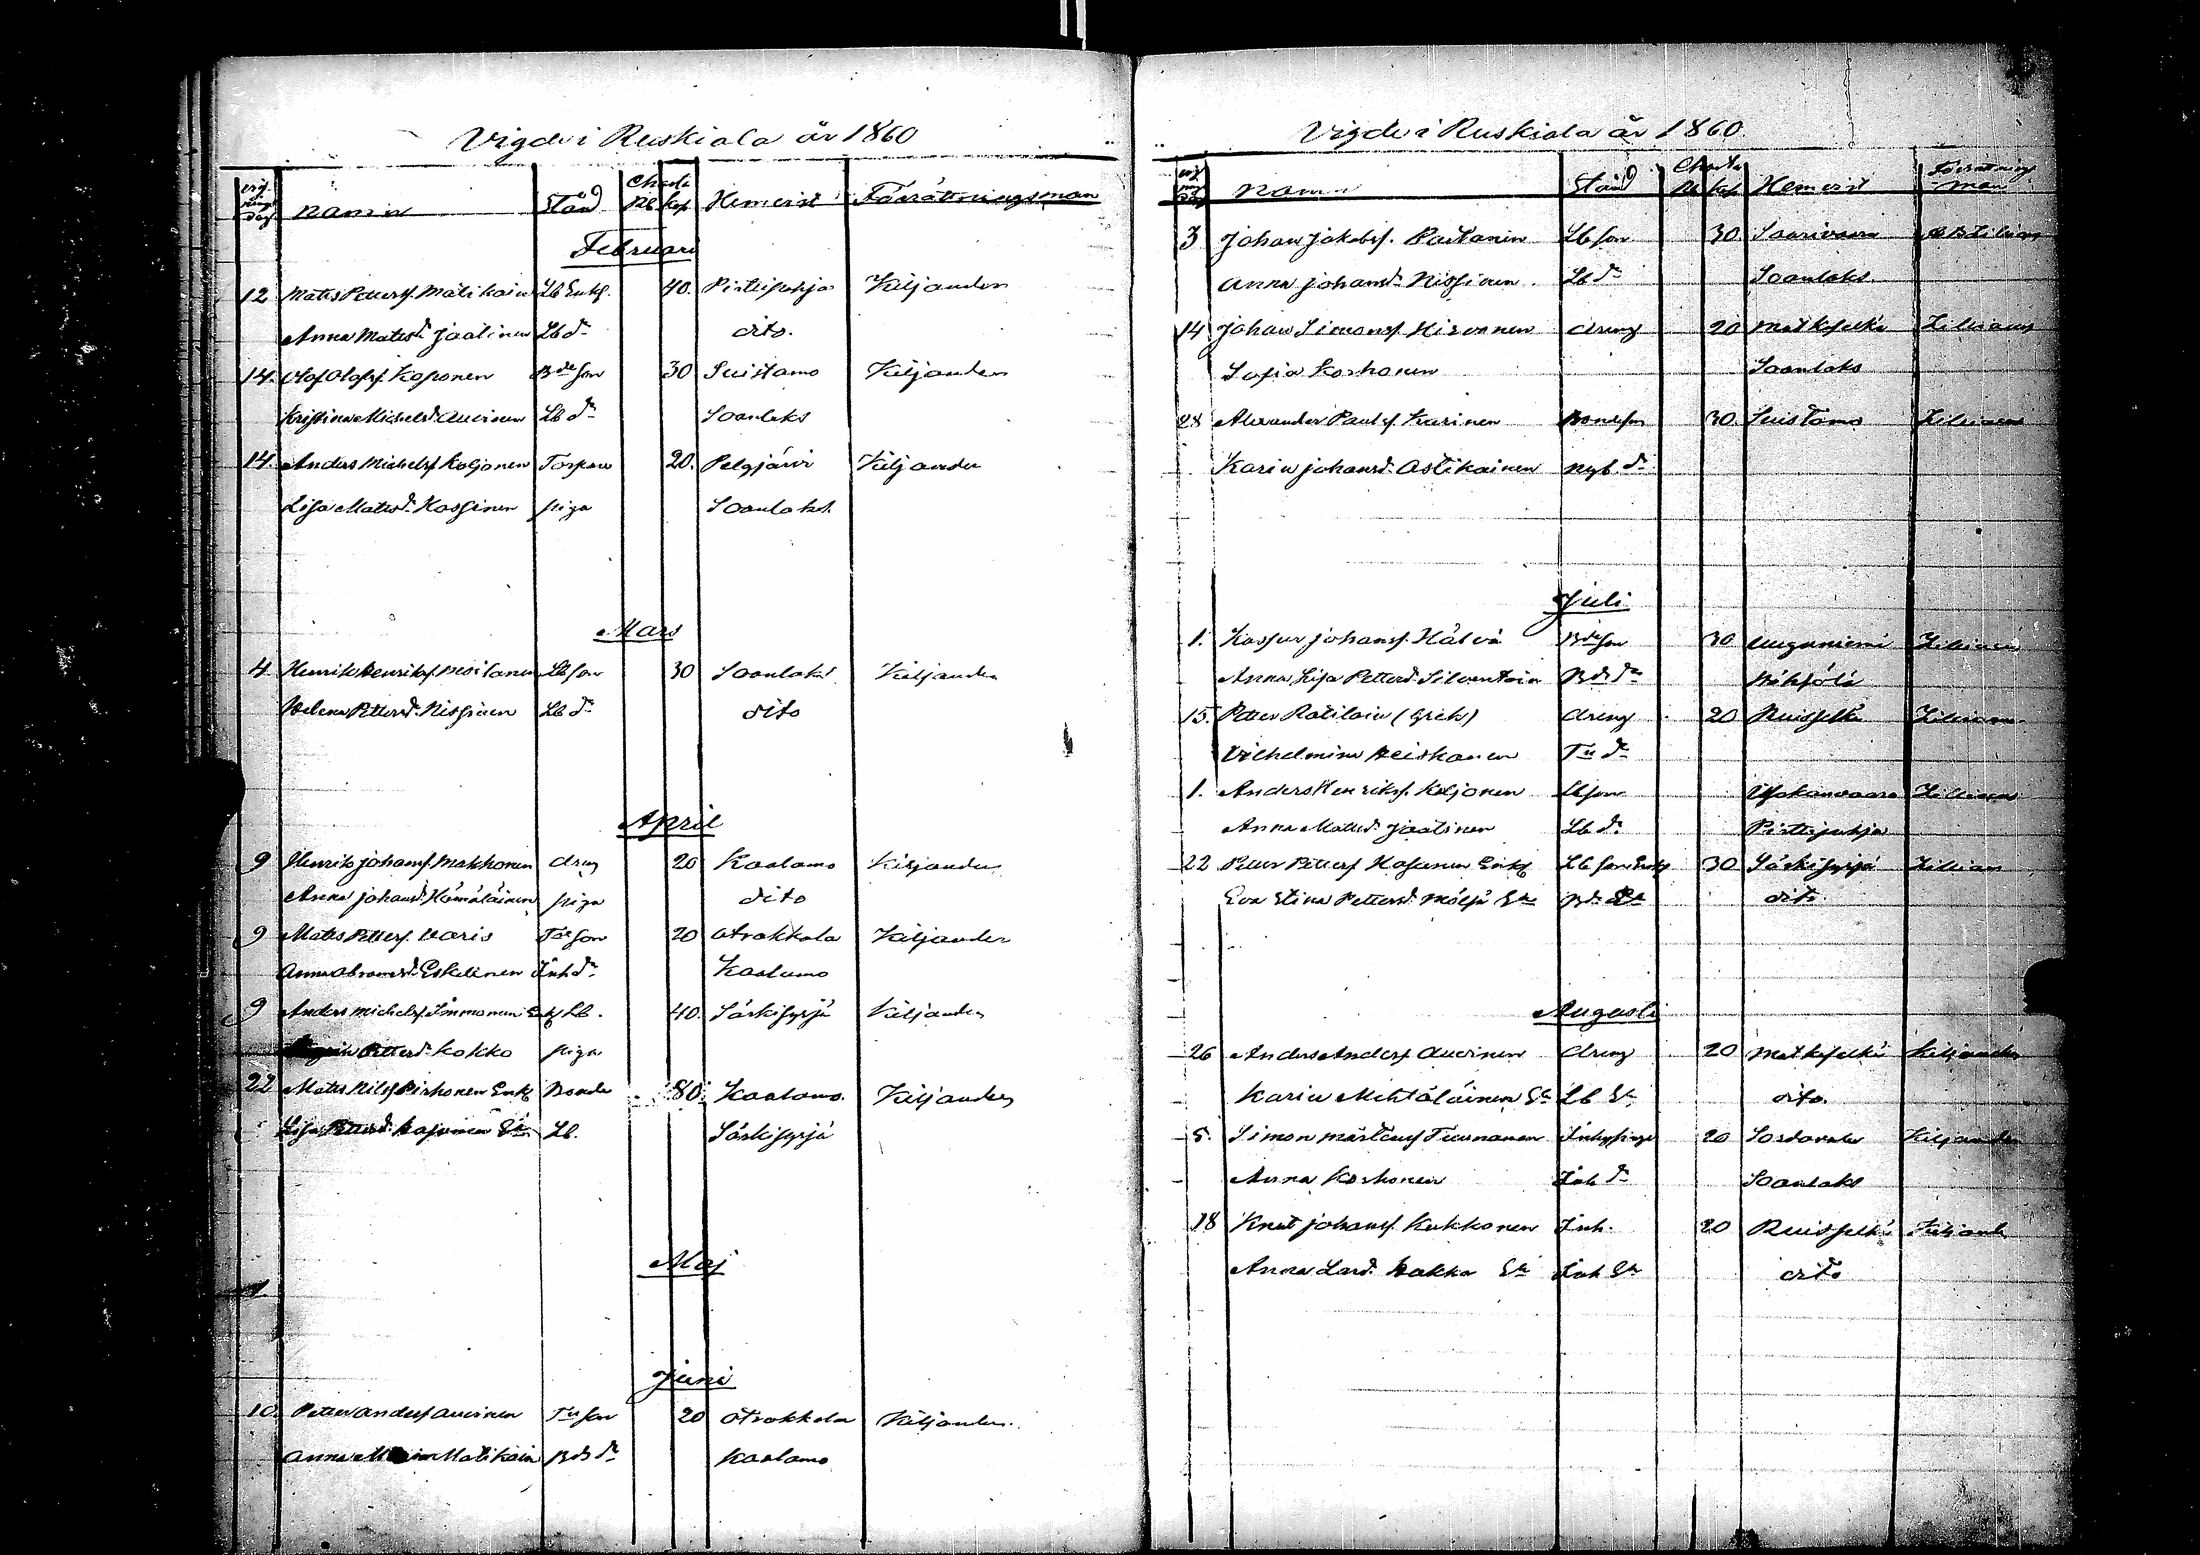 Vigde i Ruskiala år 1860
namn Stånd Charta Rb kop Hemvist Förrättningsman
Februari
12 Mats Petterss. Matikain Lb Enkl. 40. Pirttipohja Kiljander
Anna Matsdr Jaatinen Lb dr dito.
14. Olof Olofss. Koponen Bde son 30 Suistamo Kiljander
Kristina Michelsdr Auvinen Lb dr Soanlaks
14. Anders Michelss Koljonen Torpare 20. Pelgjärvi Kiljander
Lisa Matsdr Kossinen piga Soanlaks
Mars
4 Henrik Henrikss. Lb son 30 Soanlaks Kiljander
Helena Pettersdr Nissinen Lb dr dito
April
9 Henrik Johanss. Makkonen dreng 20 Kaalamo Kiljander
Anna Johansdr Hämäläinen piga dito
9 Mats Petterss. Varis son 20 Otrakkala Kiljander
Anna Abramsdr Eskelinen Inh dr Kaalamo
9 Anders Michelss. Immonen Enkl Lb. 40. Särkisyrjä Kiljander
Pettersdr Kokko piga
22 Mats Nilss Pirhonen Enkl Bonde 80. Kaalamo. Kiljander
Lisa Pettersdr Ea Lb. Särkisyrjä
Maj
Juni
10. Petter Anderss Auvinen son 20 Otrakkala Kiljander.
Anna Matikain Bd dr Kaalamo
Vigde i Ruskiala år 1860.
namn Stånd Charta Rb kop Hemvist Förrättning man
3 Johan Jakobss. Partanen Lb son 30 Saarivaara
Anna Johansdr Nissinen. Lb dr Soanlaks.
14 Johan Simonss Hirvonen dreng 20 Matkaselkä
Sofia Korhonen Soanlaks
28 Alexander Paulss. Karinen Bondeson 30. Suistamo
Karin Johansdr Astikainen nyb. dr
Juli
1. Kasper Johanss. Hätvä Bde son 30 Uuguniemi
Anna Lisa Pettersdr Silventoin Bde dr
15. Petter Ratilain (Grek) dreng 20 Ruisselkä
Vilhelmina Heiskanen dr
1. Anders Henrikss. Koljonen Lb son
Anna Mattsdr Jaatinen Lb dr Pirttipohja
22 Petter Petterss Enkl Lb son Enkl 30 Särkisyrjä
Eva Stina Pettersdr Mölsä Ea dito.
Augusti
26 Anders Anderss Auvinen dreng 20 Matkaselkä Kiljander
Karin Mehtäläinen Ea Lb Ea dito.
5. Simon Mårtenss Tuunanen Inhysing 20 Sordavala Kiljander
Anna Korhonen Inh dr Soanlaks
18 Knut Johanss. Kukkonen Inh. 20 Ruisselkä Kiljand
Anna Larsdr Kakko Ea Inh Ea dito